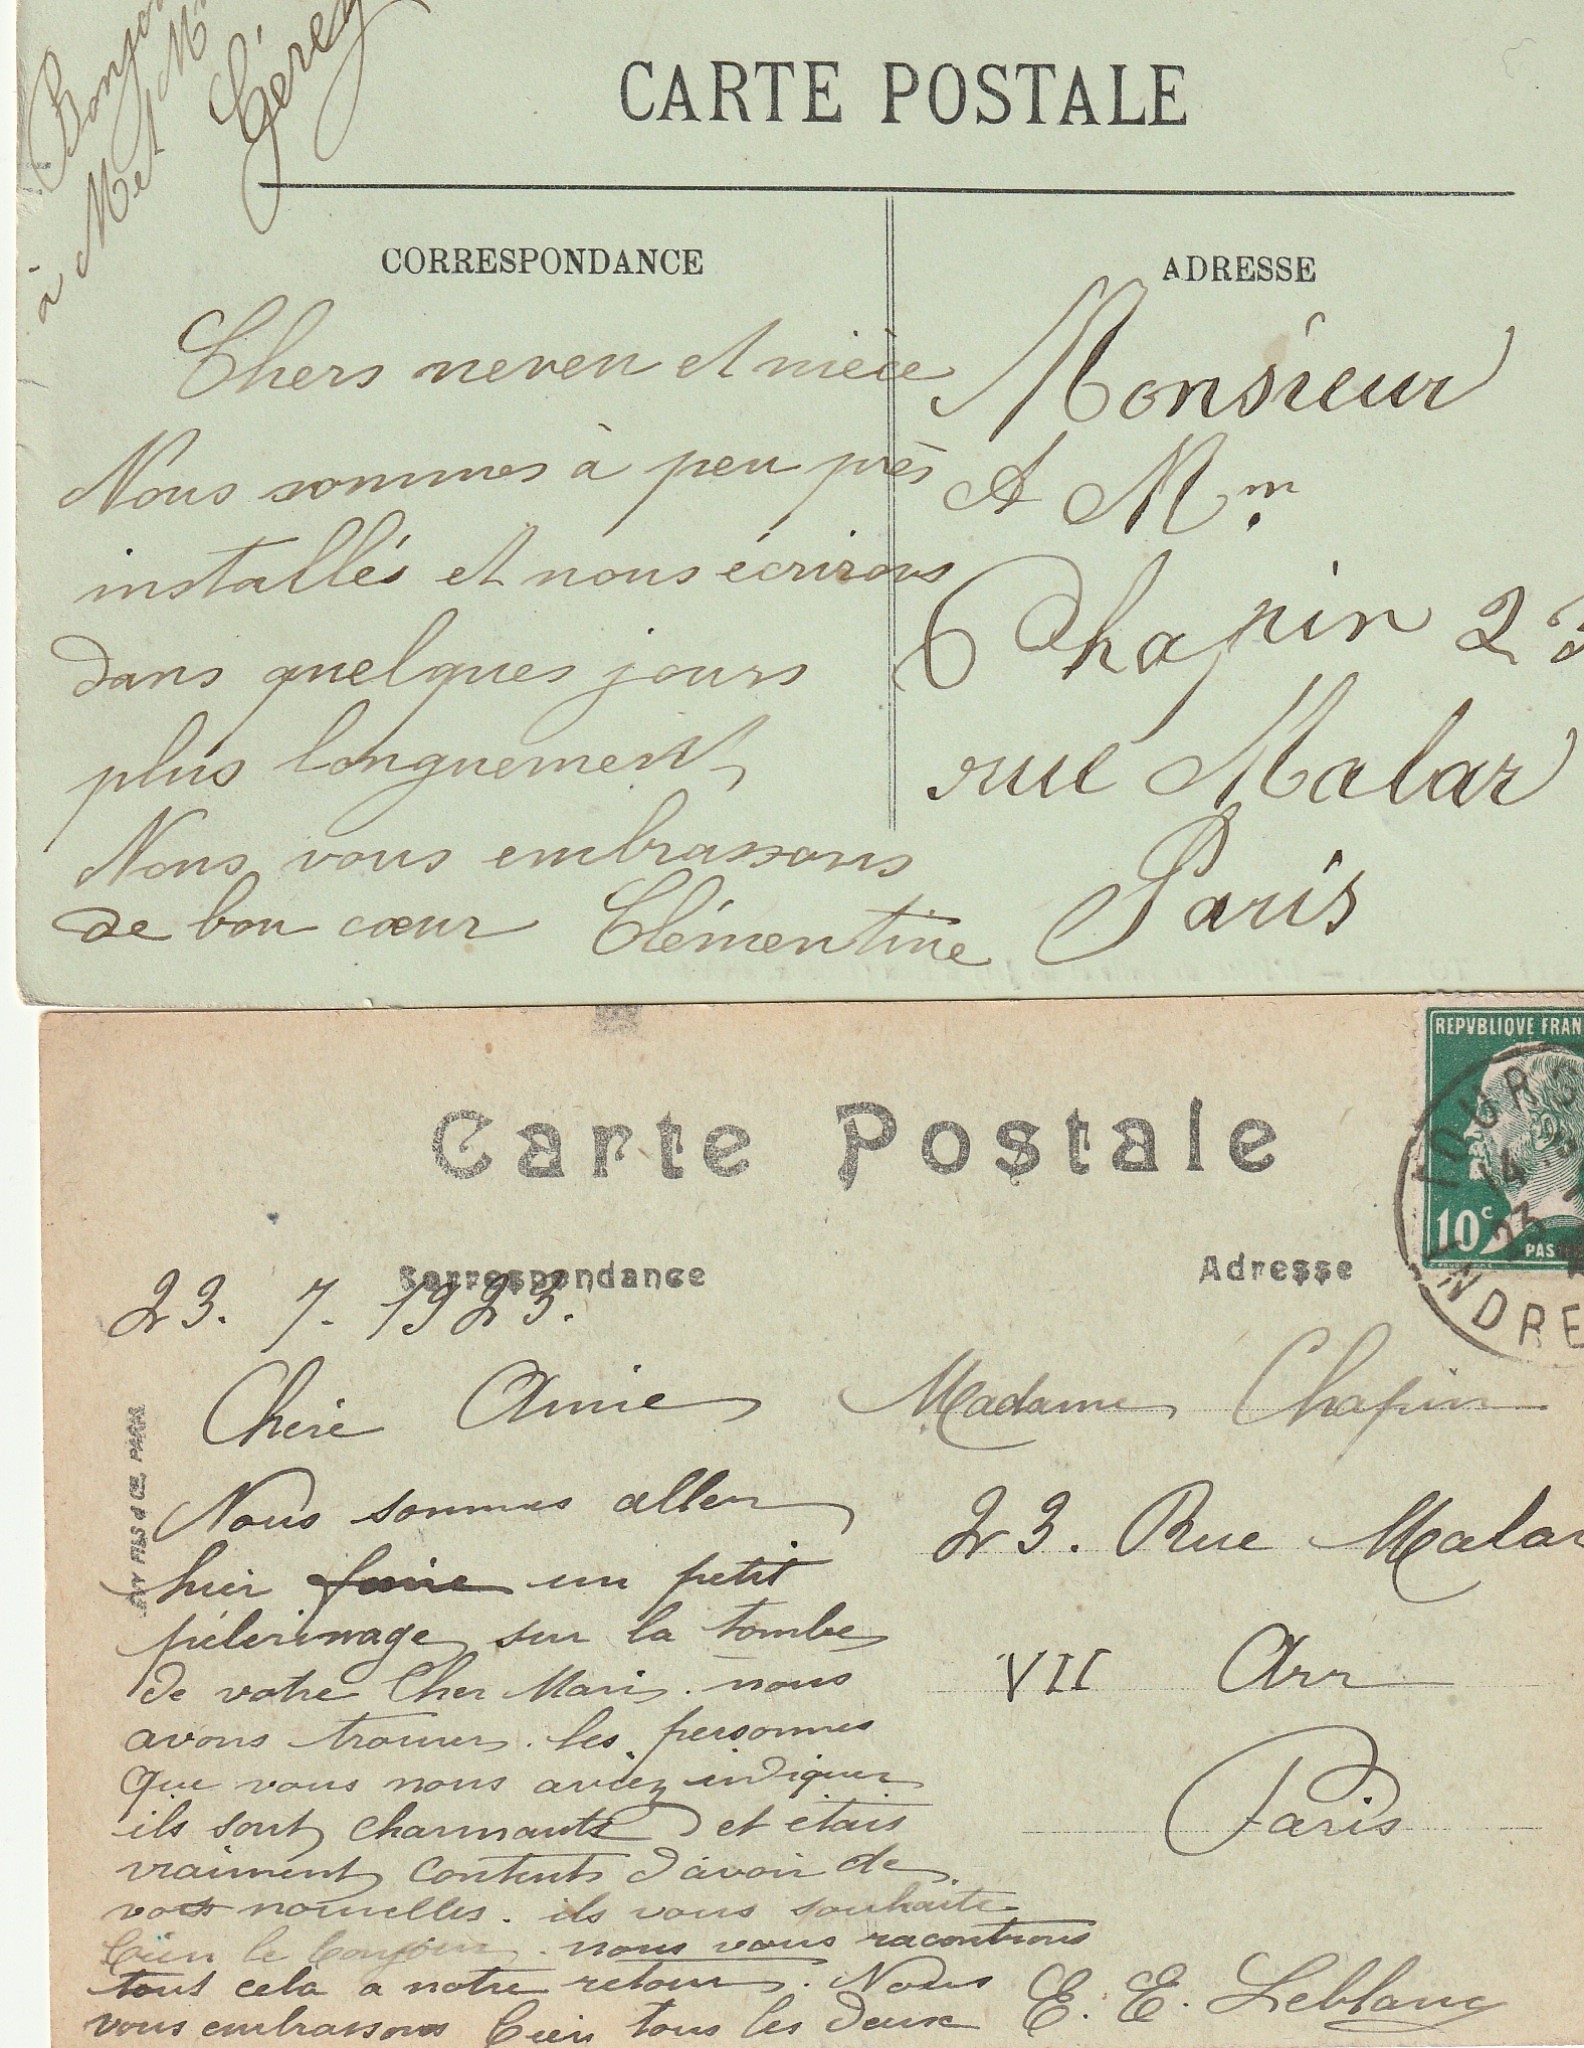 Bonjour
à M et Mr
Gérey
CARTE POSTALE
CORRESPONDANCE
Chers neveu et nièce
Nous sommes à peu près
installés et nous écrirons
dans quelques jours
plus longuement
Nous vous embrassons
de bon cœur Clémentine
ADRESSE
Monsieur
et Mm
Chapin 23
rue Malar
Paris
Carte Postale
Correspondance
23. 7. 1923.
Chère Amie
Nous sommes aller
hier faire un petit
pèlerinage sur la tombe
de votre Cher Mari. nous
avons trouver les personnes
que vous nous aviez indiquer
ils sont charmants et étais
vraiment contents d'avoir de
vos nouvelles. ils vous souhaite
bien le bonjour. nous vous racontrons
tout cela a notre retour. Nous
vous embrassons bien tous les deux
E. E. Leblanc
Adresse
Madame Chapin
23. Rue Malar
VII Arr
Paris
FILS & CIE, PARIS
REPVBLIQVE FRAN
10c
PAS
TOURS
14
23
INDRE